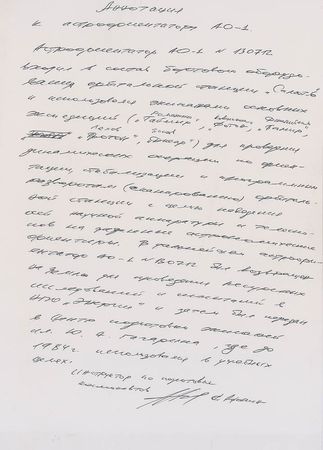 Аннотация
к астроориентатору АО-1
Астроориентатор АО-1 N В0712
входил в состав бортового оборудо-
вания орбитальной станции „Салют-6
и использовался экипажами основных
Романенко,
экспедиций („Таймыр", „Фотон", „Памир",
Попов
„Протон", „Днепр") для проведения
динамических операций по ориен-
тации, стабилизации и программным
разворотам (сканированию) орбиталь-
ной станции с целью наведения
научной аппаратуры и
на заданные астрономические
ориентиры. В дальнейшем астроори-
ентатор АО-1 N В0712 был возвращен
на Землю для проведения ресурсных
исследований и испытаний в
НПО „Энергия" и затем был передан
в Центр подготовки космонавтов
им. Ю. А. Гагарина, где до
1984г использовался в учебных
целях.
Инструктор по подготовке
космонавтов